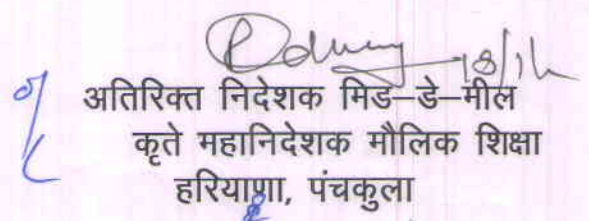 अतिरिक्त निदेशक मिड–डे–मील
कृते महानिदेशक मौलिक शिक्षा
हरियाणा, पंचकुला